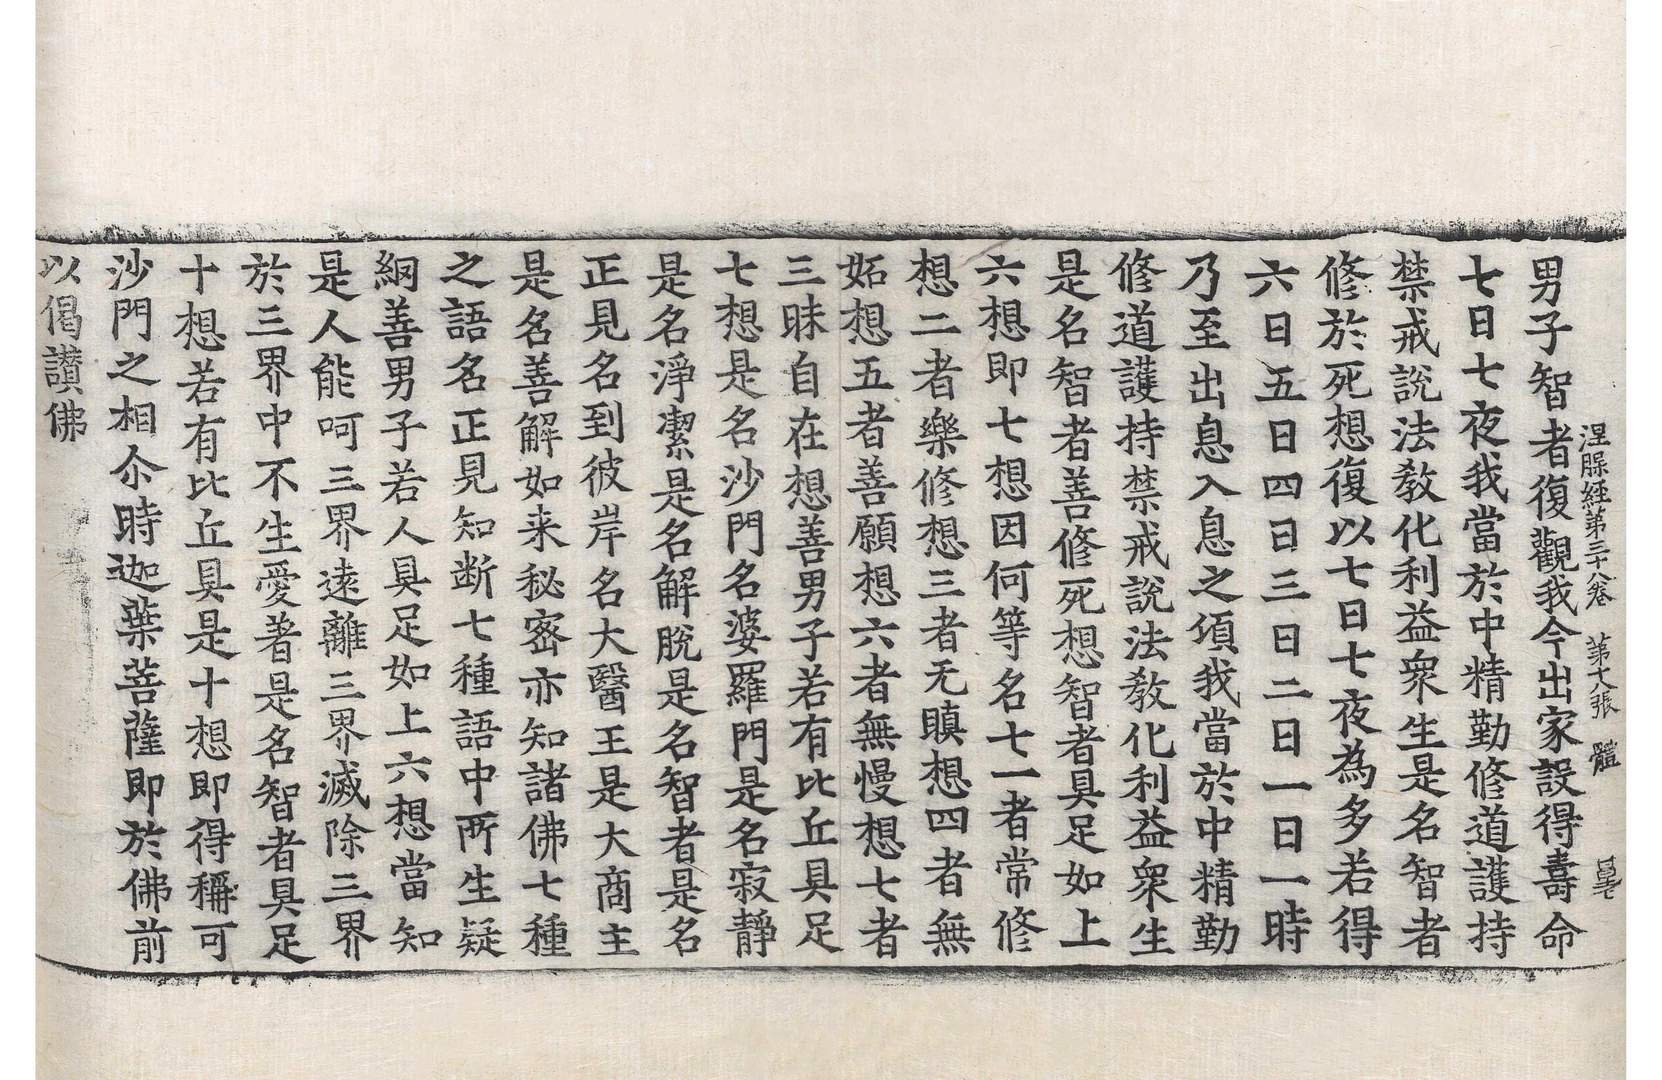 涅槃經第三十八卷　第十八張　體
男子智者復觀我今出家設得壽命
七日七夜我當於中精勤修道護持
禁戒說法教化利益衆生是名智者
修於死想復以七日七夜為多若得
六日五日四日三日二日一日一時
乃至出息入息之頃我當於中精勤
修道護持禁戒說法教化利益衆生
是名智者善修死想智者具足如上
六想即七想因何等名七一者常修
想二者樂修想三者无瞋想四者無
妬想五者善願想六者無慢想七者
三昧自在想善男子若有比丘具足
七想是名沙門名婆羅門是名寂靜
是名淨潔是名解脫是名智者是名
正見名到彼岸名大醫王是大商主
是名善解如来秘密亦知諸佛七種
之語名正見知断七種語中所生疑
綱善男子若人具足如上六想當知
是人能呵三界遠離三界滅除三界
於三界中不生愛著是名智者具足
十想若有比丘具是十想即得稱可
沙門之相尒時迦葉菩薩即於佛前
以偈讃佛